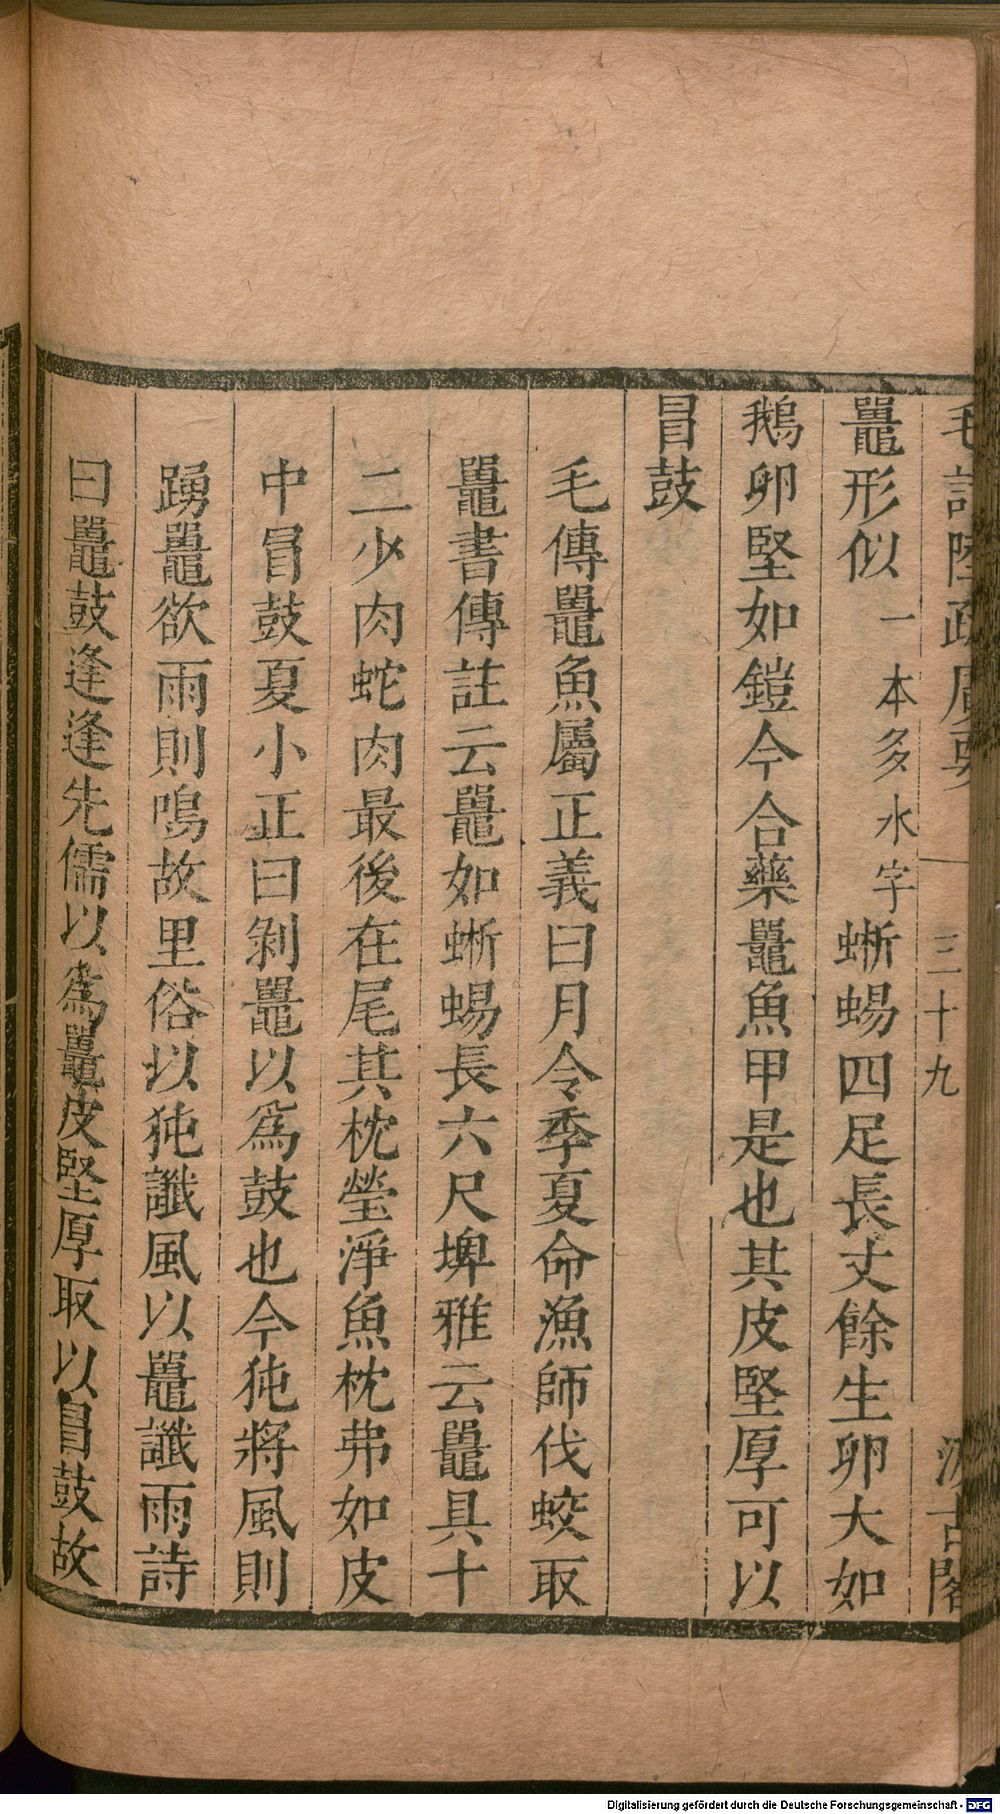 毛詩陸疏廣要
三十九
汲古閣
鼉形似一本多水字蜥蜴四足長丈餘生卵大如
鵝卵堅如鎧今合藥鼉魚甲是也其皮堅厚可以
冒鼓
毛傳鼉魚屬正義曰月令季夏命漁師伐蛟取
鼉書傳註云鼉如蜥蜴長六尺埤雅云鼉具十
二少肉蛇肉最後在尾其枕瑩淨魚枕弗如皮
中冒鼓夏小正曰剝鼉以爲鼓也今㹠將風則
踴鼉欲雨則鳴故里俗以㹠讖風以鼉讖雨詩
曰鼉鼓逢逢先儒以爲鼉皮堅厚取以冒鼓故
Digitalisierung gefördert durch die Deutsche Forschungsgemeinschaft - DFG